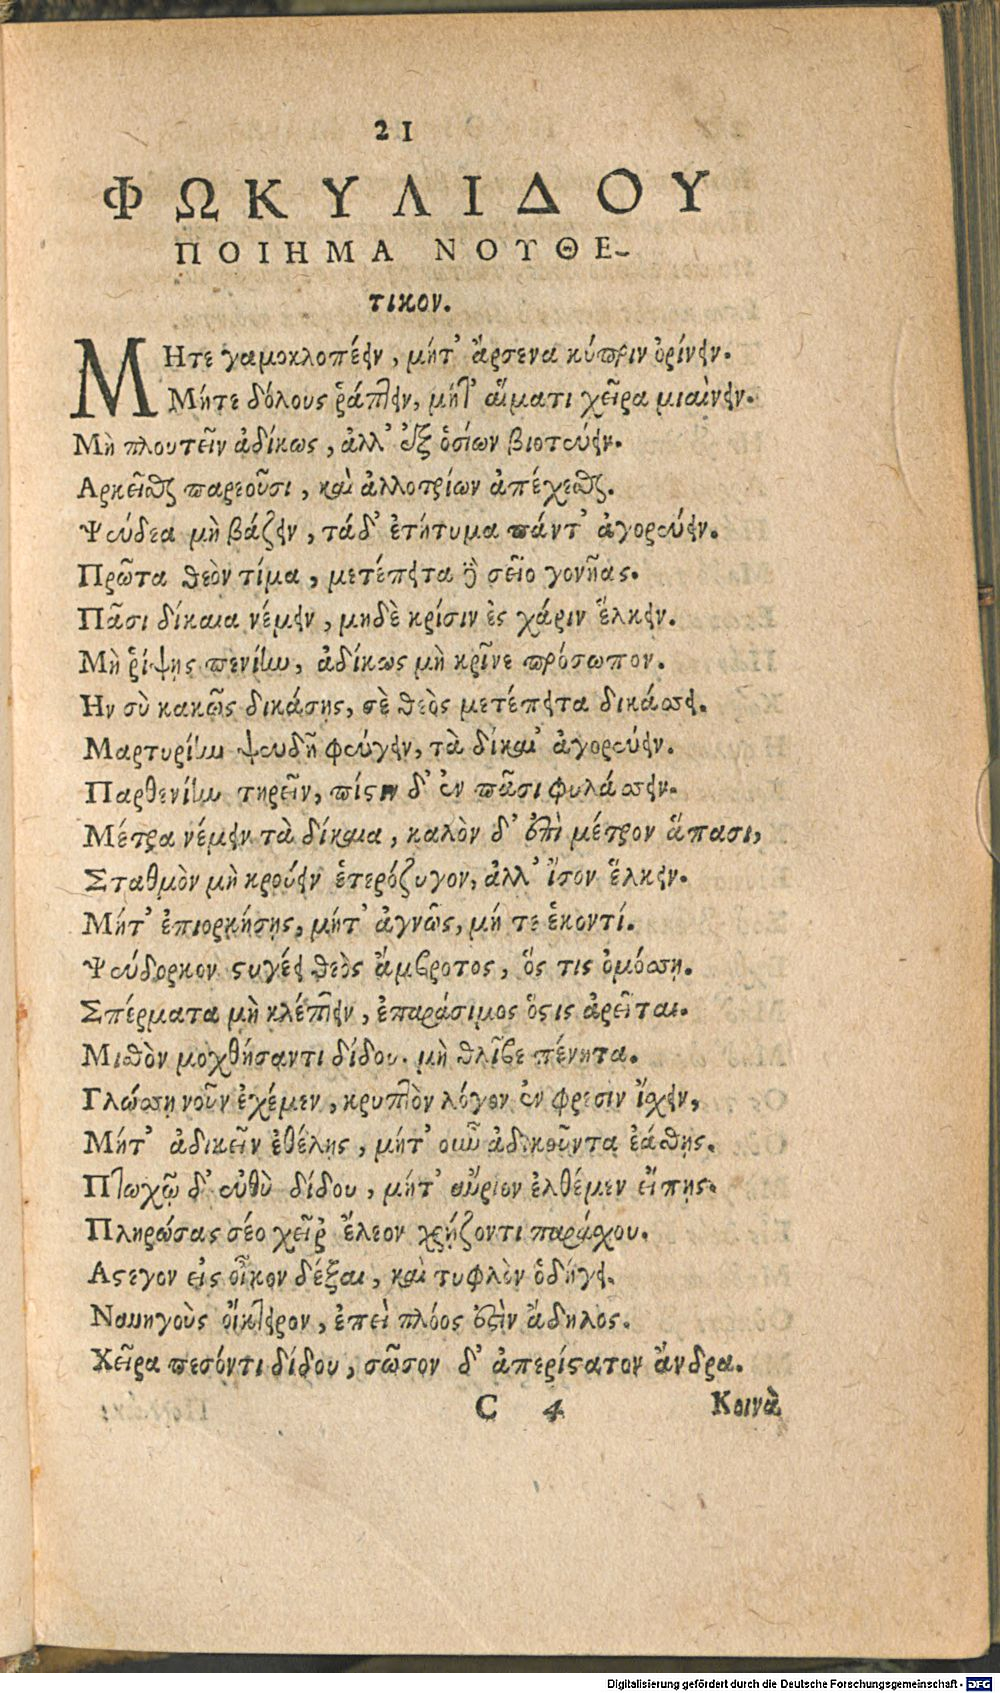 21
ΦΩΚΥΛΙΔΟΥ
ΠΟΙΗΜΑ ΝΟΥΘΕ-
τικον.
ΜΗτε γαμοκλοπέειν, μήτ' ἄρσενα κύπριν ὀρίνειν.
Μήτε δόλους ῥάπτειν, μήτ' αἵματι χεῖρα μιαίνειν.
Μὴ πλουτεῖν ἀδίκως, ἀλλ' ἐξ ὁσίων βιοτεύειν.
Αρκεῖσθαι παρεοῦσι, καὶ ἀλλοτρίων ἀπέχεσθαι.
Ψεύδεα μὴ βάζειν, τάδ' ἐτήτυμα πάντ' ἀγορεύειν.
Πρῶτα θεὸν τίμα, μετέπειτα δὲ σεῖο γονῆας.
Πᾶσι δίκαια νέμειν, μηδὲ κρίσιν ἐς χάριν ἕλκειν.
Μὴ ῥίψῃς πενίην, ἀδίκως μὴ κρῖνε πρόσωπον.
Ην σὺ κακῶς δικάσῃς, σὲ θεὸς μετέπειτα δικάσσει.
Μαρτυρίην ψευδῆ φεύγειν, τὰ δίκαι' ἀγορεύειν.
Παρθενίην τηρεῖν, πίστιν δ' ἐν πᾶσι φυλάσσειν.
Μέτρα νέμειν τὰ δίκαια, καλὸν δ' ἐπὶ μέτρον ἅπασι,
Σταθμὸν μὴ κρούειν ἑτερόζυγον, ἀλλ' ἴσον ἕλκειν.
Μήτ' ἐπιορκήσῃς, μήτ' ἀγνῶς, μή τε ἑκοντί.
Ψεύδορκον στυγέει θεὸς ἄμβροτος, ὅς τις ὀμόσσῃ.
Σπέρματα μὴ κλέπτειν, ἐπαράσιμος ὅστις ἀρεῖται.
Μισθὸν μοχθήσαντι δίδου. μὴ θλῖβε πένητα.
Γλώσσῃ νοῦν ἐχέμεν, κρυπτὸν λόγον ἐν φρεσὶν ἴσχειν,
Μήτ' ἀδικεῖν ἐθέλῃς, μήτ' οὖν ἀδικοῦντα ἐάσῃς.
Πτωχῷ δ' εὐθὺ δίδου, μήτ' αὔριον ἐλθέμεν εἴπῃς.
Πληρώσας σέο χεῖρ' ἔλεον χρῄζοντι παράσχου.
Αστεγον εἰς οἶκον δέξαι, καὶ τυφλὸν ὁδήγει.
Ναυηγοὺς οἴκτειρον, ἐπεὶ πλόος ἐστὶν ἄδηλος.
Χεῖρα πεσόντι δίδου, σῶσον δ' ἀπερίστατον ἄνδρα.
C 4 Κοινὰ
Digitalisierung gefördert durch die Deutsche Forschungsgemeinschaft - DFG